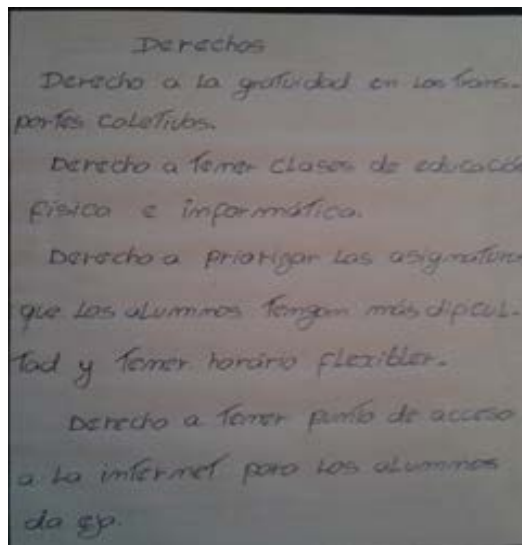 Derechos
Derecho a la gratuidad en los trans-
portes coletivos.
Derecho a tener clases de educación
física e informática.
Derecho a priorizar las asignatura
que los alumnos tengam más dificul-
tad y tener horário flexibler.
Derecho a tener punto de acceso
a la internet para los alumnos
da